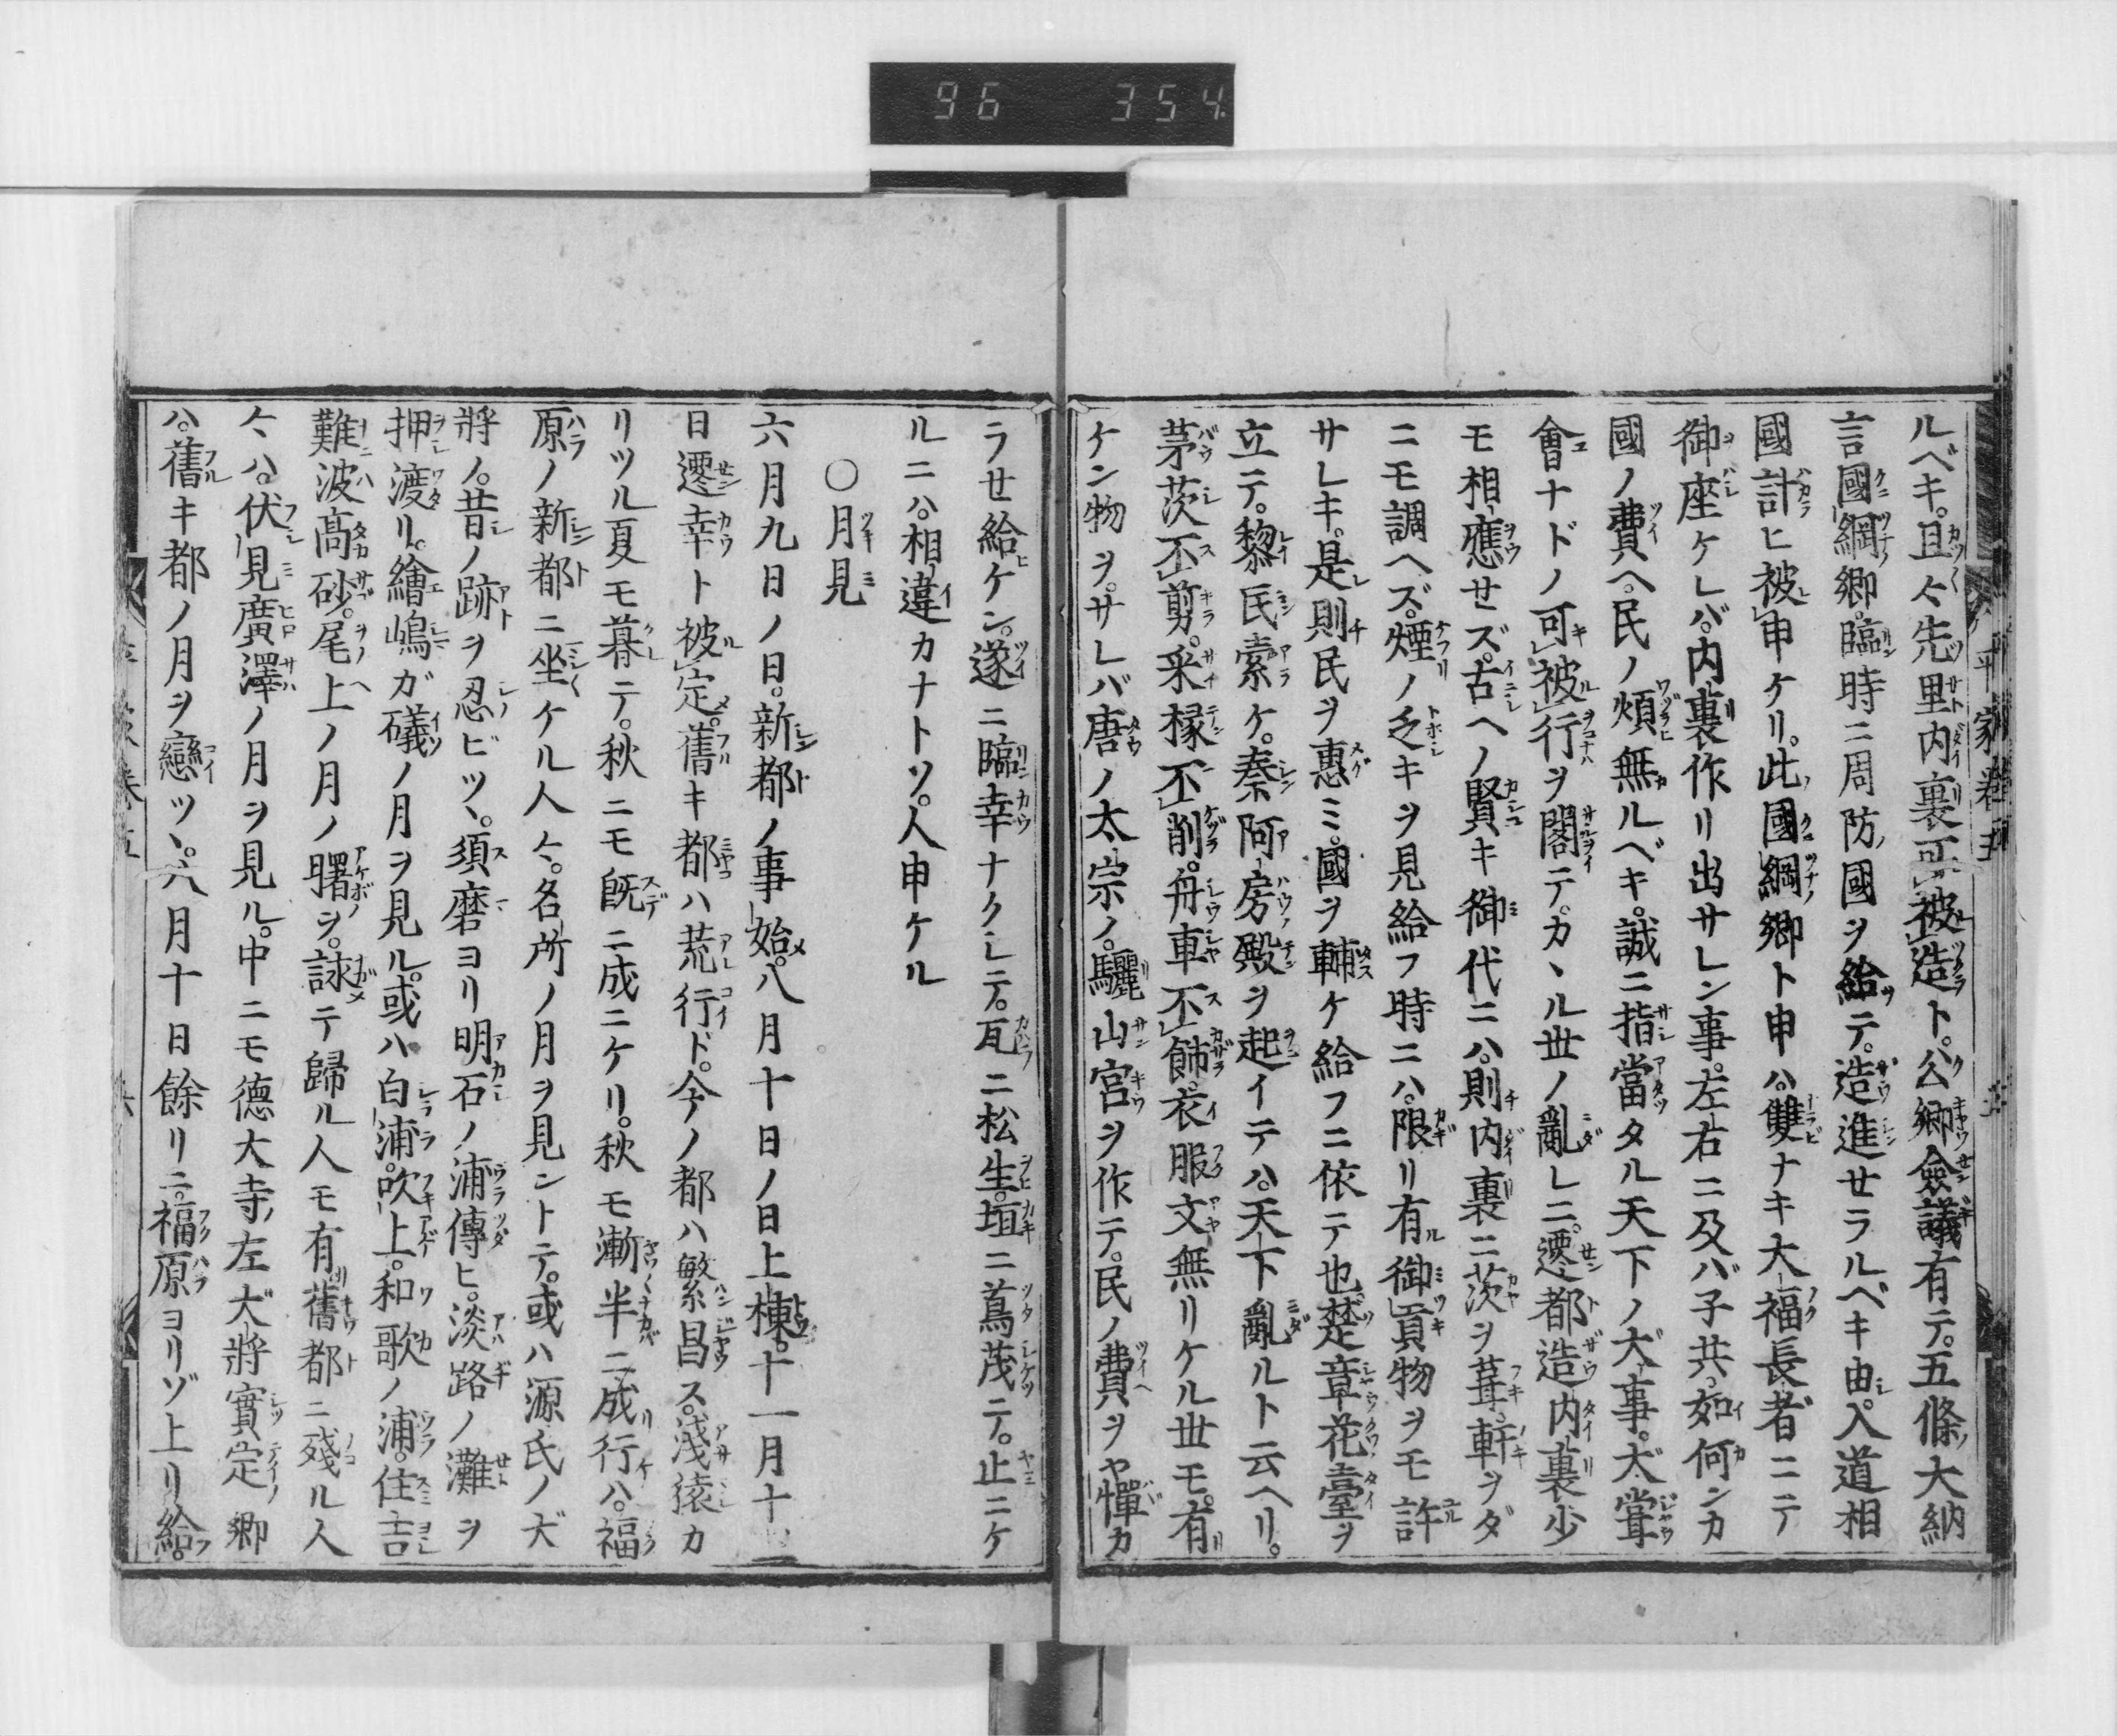 96 354
ルベキ。且々先里内裏可被造ト。公卿僉議有テ。五條大納
言國綱卿。臨時ニ周防國ヲ給テ。造進セラルベキ由。入道相
國計ヒ被申ケリ。此國綱卿ト申ハ。雙ナキ大福長者ニテ
御座ケレバ。内裏作リ出サレン事。左右ニ及バ子共。如何ンカ
國ノ費ヘ。民ノ煩無ルベキ。誠ニ指當タル天下ノ大事。大甞
會ナドノ可被行ヲ閣テ。カヽル世ノ亂レニ。遷都造内裏少
モ相應せズ。古ヘノ賢キ御代ニハ。則内裏ニ茨ヲ葺。軒ヲダ
ニモ調ヘズ。煙ノ乏キヲ見給フ時ニハ。限リ有御貢物ヲモ許
サレキ。是則民ヲ惠ミ。國ヲ輔ケ給フニ依テ也。楚章花臺ヲ
立テ。黎民索ケ。秦阿房殿ヲ起イテハ。天下亂ルト云ヘリ。
茅茨不剪。采椽不削。舟車不餝。衣服文無リケル世モ。有
ケン物ヲ。サレバ唐ノ太宗ノ。驪山宮ヲ作テ。民ノ費ヲヤ憚カ
ラせ給ケン。遂ニ臨幸ナクシテ。瓦ニ松生。垣ニ蔦茂テ。止ニケ
ルニハ。相違カナトソ。人申ケル
〇月見
六月九日ノ日。新都ノ事始。八月十日ノ日上棟。十一月十三
日遷幸ト被定。舊キ都ハ荒行ド。今ノ都ハ繁昌ス。淺猿カ
リツル夏モ暮テ。秋ニモ既ニ成ニケリ。秋モ漸半ニ成行ハ。福
原ノ新都ニ坐ケル人々。名所ノ月ヲ見ントテ。或ハ源氏ノ大
將ノ。昔ノ跡ヲ忍ビツヽ。須磨ヨリ明石ノ浦傳ヒ。淡路ノ灘ヲ
押渡リ。繪嶋ガ礒ノ月ヲ見ル。或ハ白浦。吹上。和歌ノ浦。住吉
難波高砂。尾上ノ月ノ曙ヲ。詠テ歸ル人モ有。舊都ニ殘ル人
々ハ。伏見廣澤ノ月ヲ見ル。中ニモ德大寺ノ左大將實定卿
ハ。舊キ都ノ月ヲ戀ツヽ。八月十日餘リニ。福原ヨリゾ上リ給。